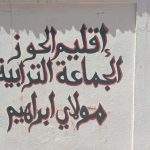 إقليم الحوز
الجماعة الترابية
مولاي ابراهيم